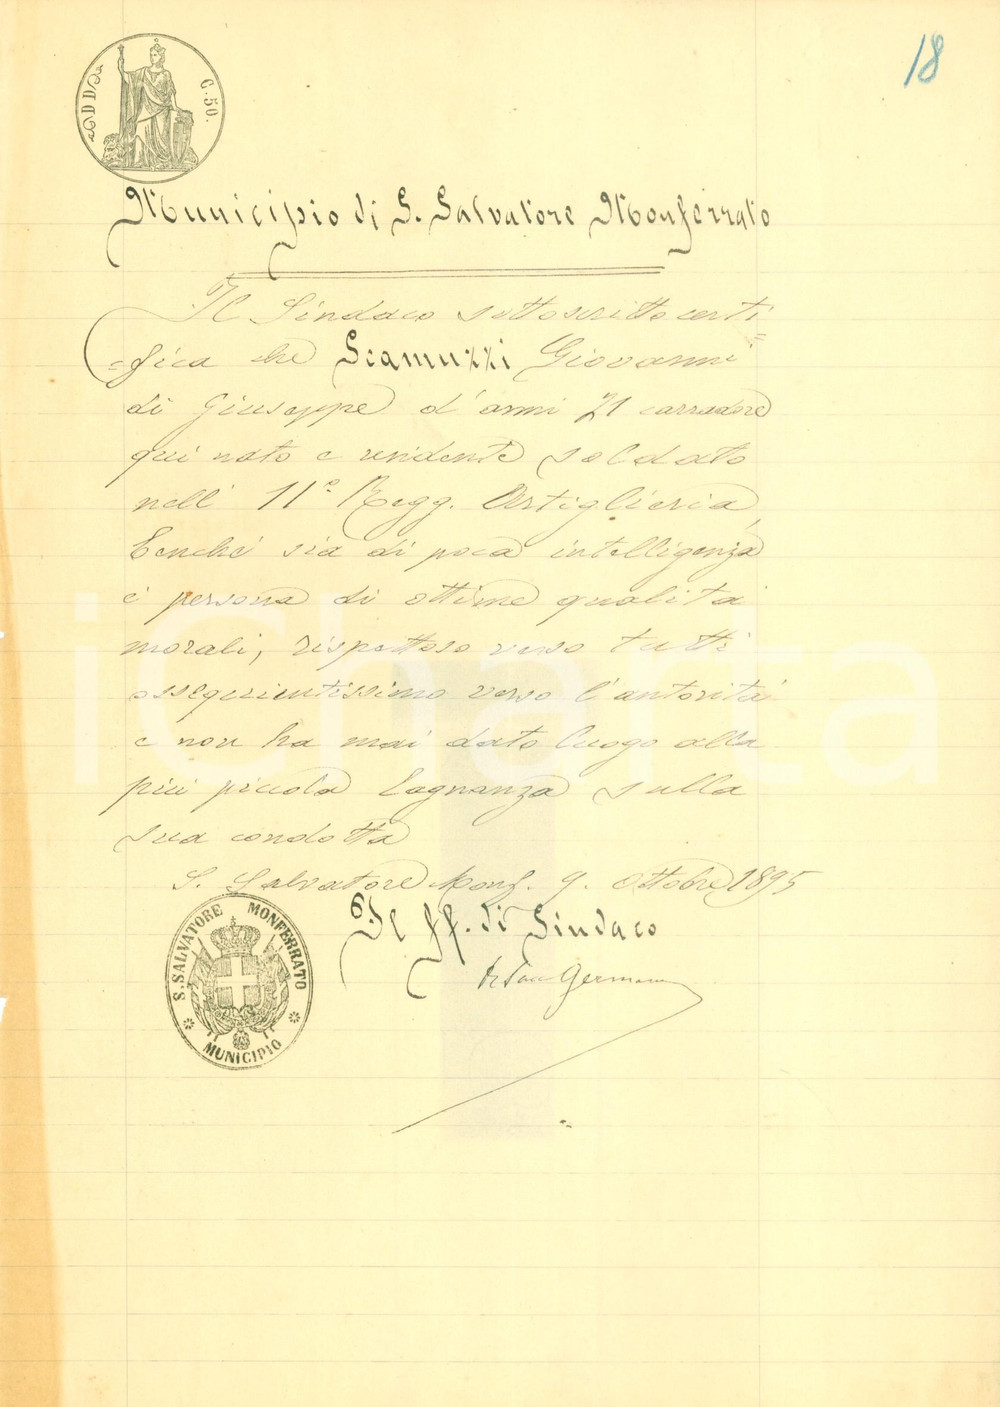 18
C. 50.
Municipio di S. Salvatore Monferrato
Il Sindaco sottoscritto certi=
=fica che Scamuzzi Giovanni
di Giuseppe d'anni 21 carradore
qui nato e residente soldato
nell' 11° Regg. Artiglieria,
benché sia di poca intelligenza
é persona di ottime qualità
morali, rispettoso verso tutti
ossequientissimo verso l'autorità
e non ha mai dato luogo alla
più piccola lagnanza sulla
sua condotta
S. Salvatore Monf. 9. Ottobre 1895
Il ff. di Sindaco
German
S. SALVATORE MONFERRATO
MUNICIPIO
iCharta